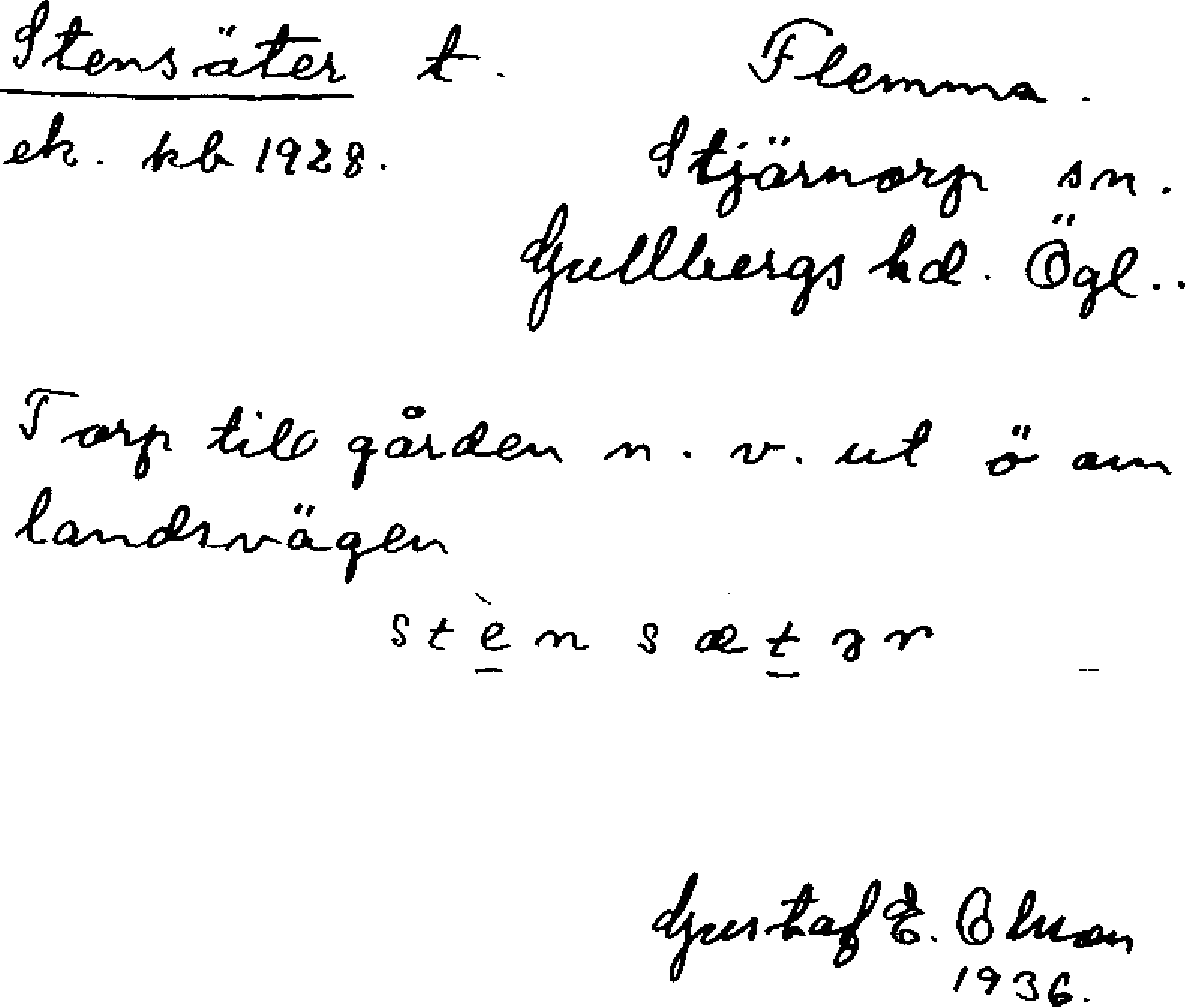 Stensäter t. Flemma.
ek. kb 1928. Stjärnorp sn.
Gullbergs hd. Ögl..
Torp till gården n. v. ut ö om
landsvägen
stènsætər
Gustaf E. Olson
1936.